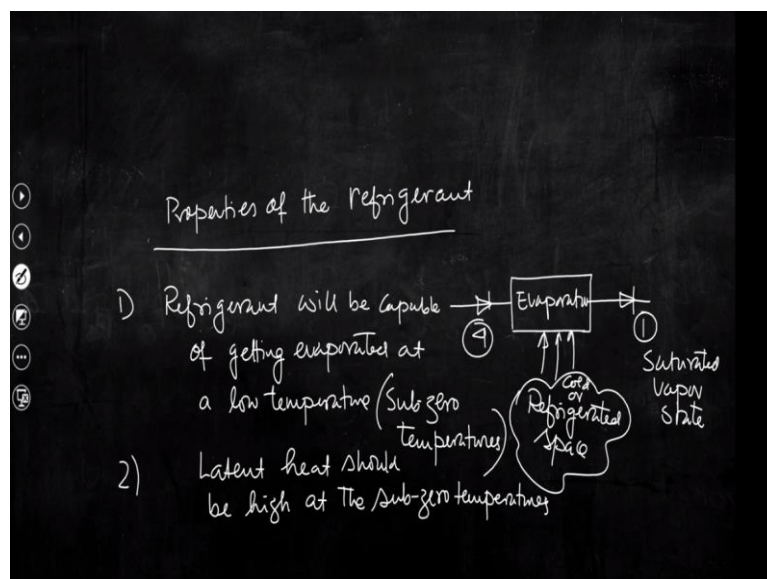 Properties of the refrigerant
1) Refrigerant will be capable
of getting evaporated at
a low temperature (Sub zero
temperatures)
2) Latent heat should
be high at the sub-zero temperatures
Evaporator
4
1
Saturated
vapor
state
Cold
or
Refrigerated
space